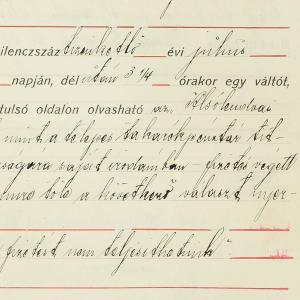 ilenczszáz tizenkettő évi július
napján, dél után 3 1/4 órakor egy váltót,
tulsó oldalon olvasható az Alsólendvai
mint a telepes takarékpénztár tit-
ságára saját irodámban fizetés végett
a következő választ nyer-
fizetést nem teljesithetünk"